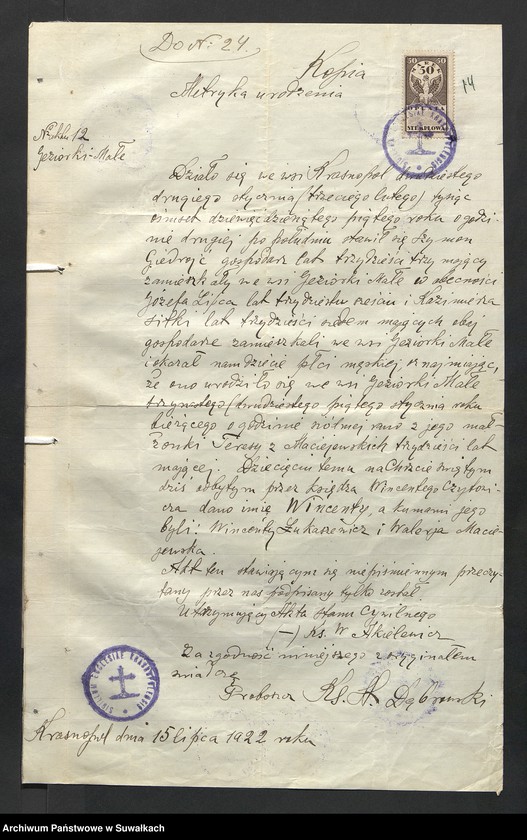 Do Nr. 24.
Kopia
14
50 50
50
Metryka urodzenia
Nr aktu 12
Jeziorki-Małe
Działo się we wsi Krasnopol dwudziestego
drugiego stycznia (trzeciego lutego) tysiąc
ośmset dziewięćdziesiątego piątego roku o godzi-
nie drugiej po południu stawił się Szymon
Giedrojć gospodarz lat trzydzieści trzy mający
zamieszkały we wsi Jeziorki Małe w obecności
Józefa Lisca lat trzydziestu sześciu i Kazimierza
Sitki lat trzydzieści siedem mających obej
gospodarze zamieszkali we wsi Jeziorki Małe
i okazał nam dziecię płci męskiej, oznajmiając,
że ono urodziło się we wsi Jeziorki Małe
trzynastego (dwudziestego piątego) stycznia roku
bieżącego o godzinie siódmej rano z jego mał-
żonki Teresy z Maciejewskich trzydzieści lat
mającej. Dziecięciu temu na Chrzcie świętym
dziś odbytym przez księdza Wincentego
dano imię Wincenty, a kumami jego
byli: Wincenty Łukaszewicz i Walerja Macie-
jewska.
Akt ten stawiającym się niepiśmiennym przeczy-
tany przez nas podpisany tylko został.
Utrzymujący Akta stanu Cywilnego
(-) Ks. W
Za zgodność niniejszego z oryginałem
Proboszcz Ks. A. Dąbrowski
Krasnopol dnia 15 lipca 1922 roku
Archiwum Państwowe w Suwałkach